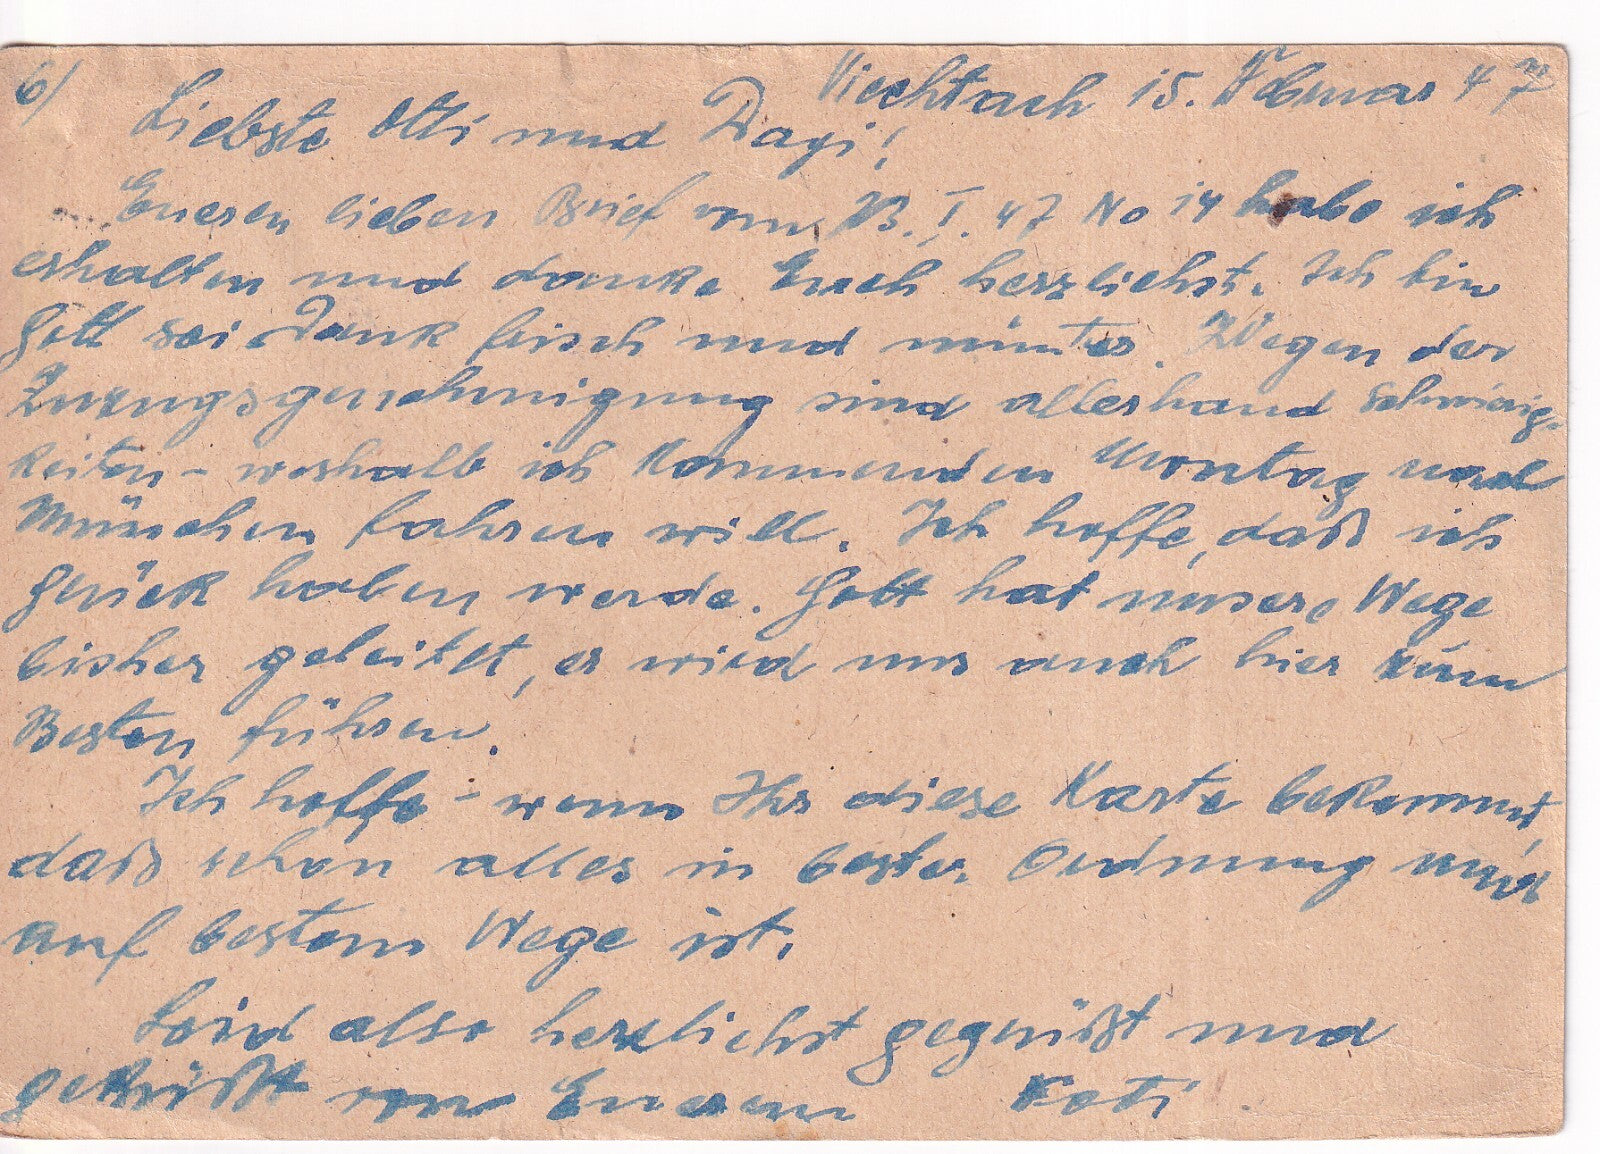 6/
Viechtach 15. Februar 47
Liebste Otti und Dagi!
Eueren lieben Brief vom 23. I. 47 No 14 habe ich
erhalten und danke Euch herzlichst. Ich bin
Gott sei Dank frisch und munter. Wegen der
Zuzugsgenehmigung sind allerhand Schwierig-
keiten - weshalb ich kommenden Montag nach
München fahren will. Ich hoffe, daß ich
Glück haben werde. Gott hat unsere Wege
bisher geleitet, er wird uns auch hier zum
Besten führen.
Ich hoffe - wenn Ihr diese Karte bekommt,
daß schon alles in bester Ordnung und
auf bestem Wege ist.
Seid also herzlichst gegrüßt und
geküßt von Eueren